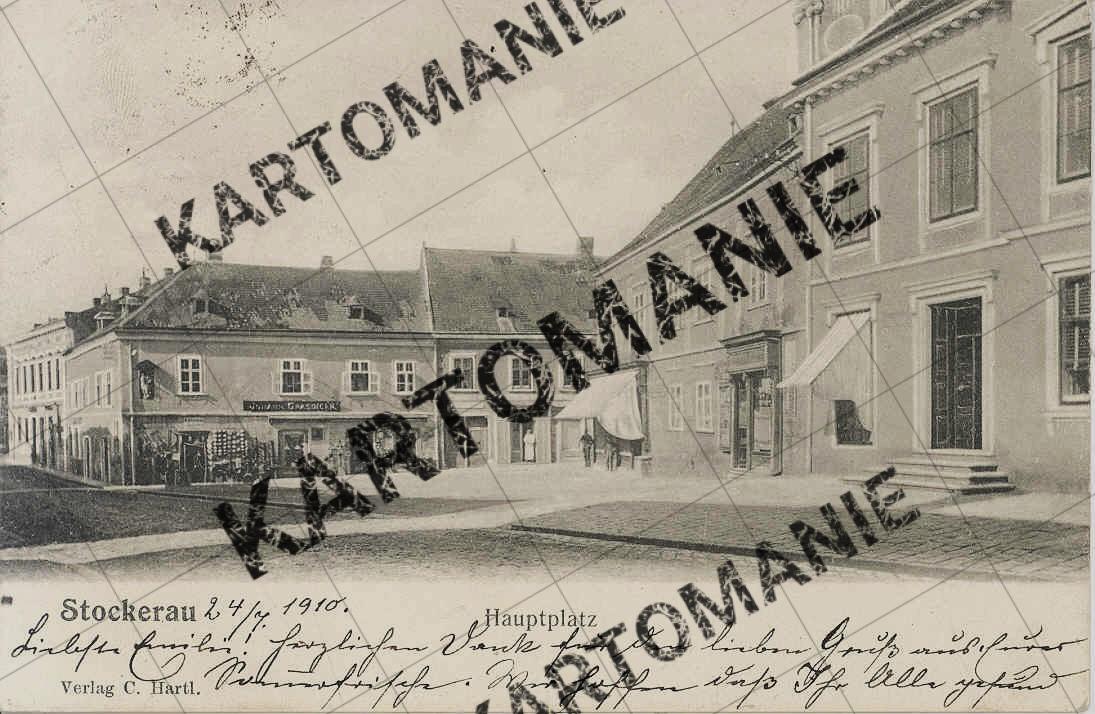 KARTOMANIE
KARTOMANIE
KARTOMANIE
JOHANN GRASSINGER
Stockerau 24/7 1910.
Hauptplatz
Liebste Emilie! Herzlichen Dank für den lieben Gruß aus Eurer
Verlag C. Hartl.
Sommerfrische. Wir hoffen daß Ihr Alle gesund